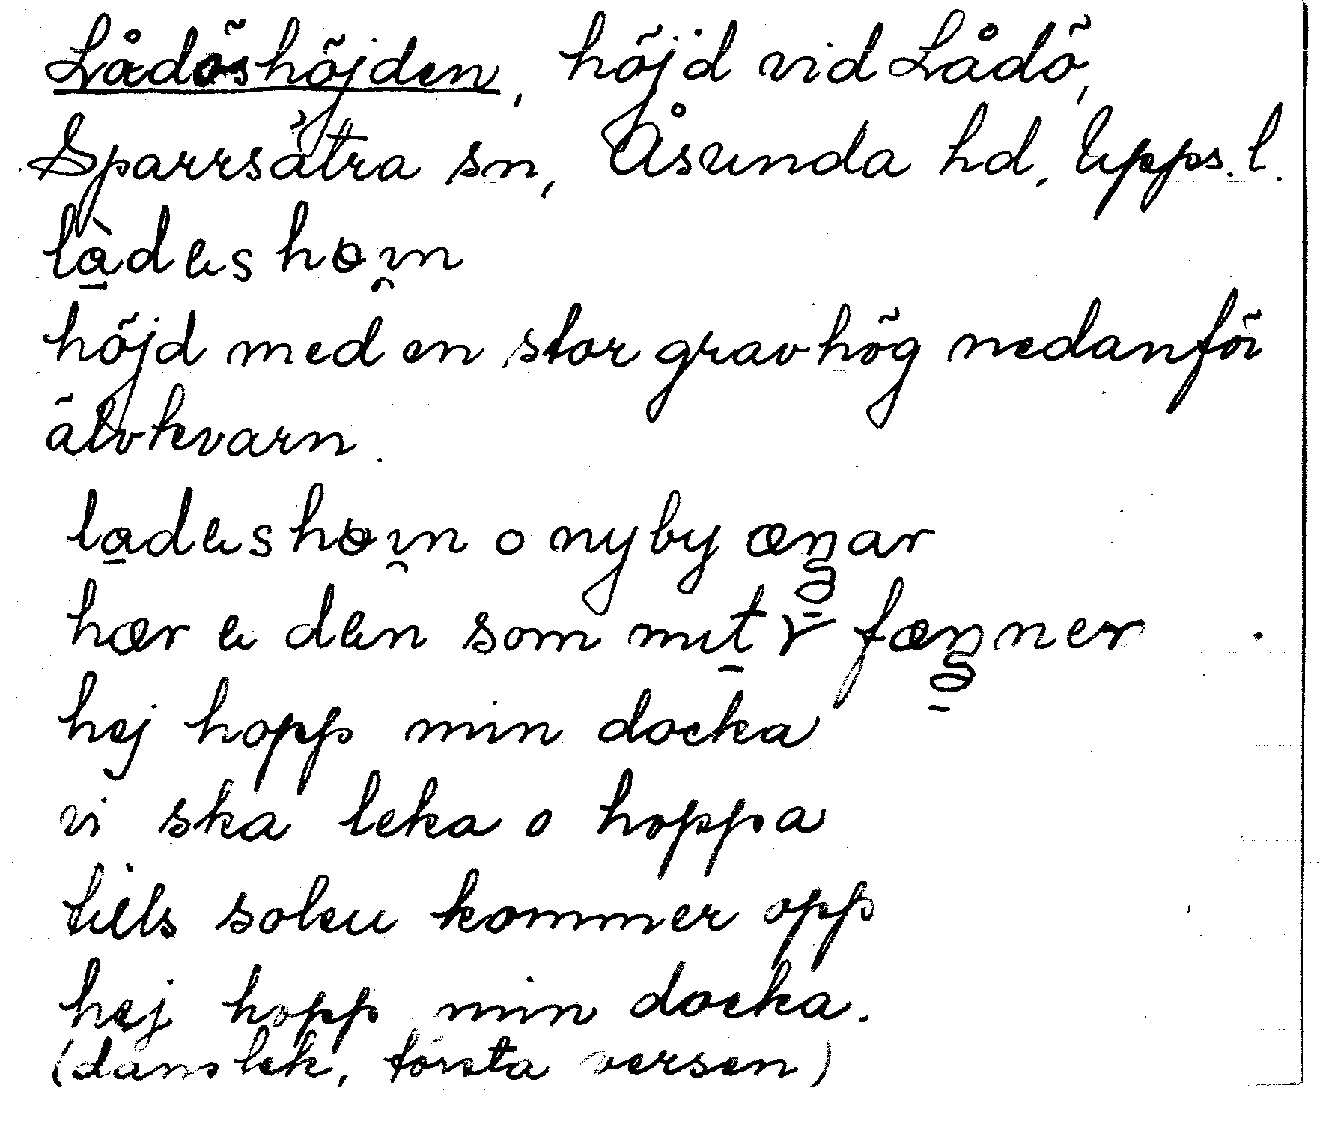 Lådöshöjden, höjd vid Lådö,
Sparrsätra sn, Åsunda hd, Upps. l.
làdɛshɵi̯n
höjd med en stor gravhög nedanför
älvkvarn.
ladɛshɵi̯n o nyby æŋar
hær ɛ dɛn som fæŋner
hej hopp min docka
vi ska leka o hoppa
tills solen kommer opp
hej hopp min docka.
(danslek, första versen)